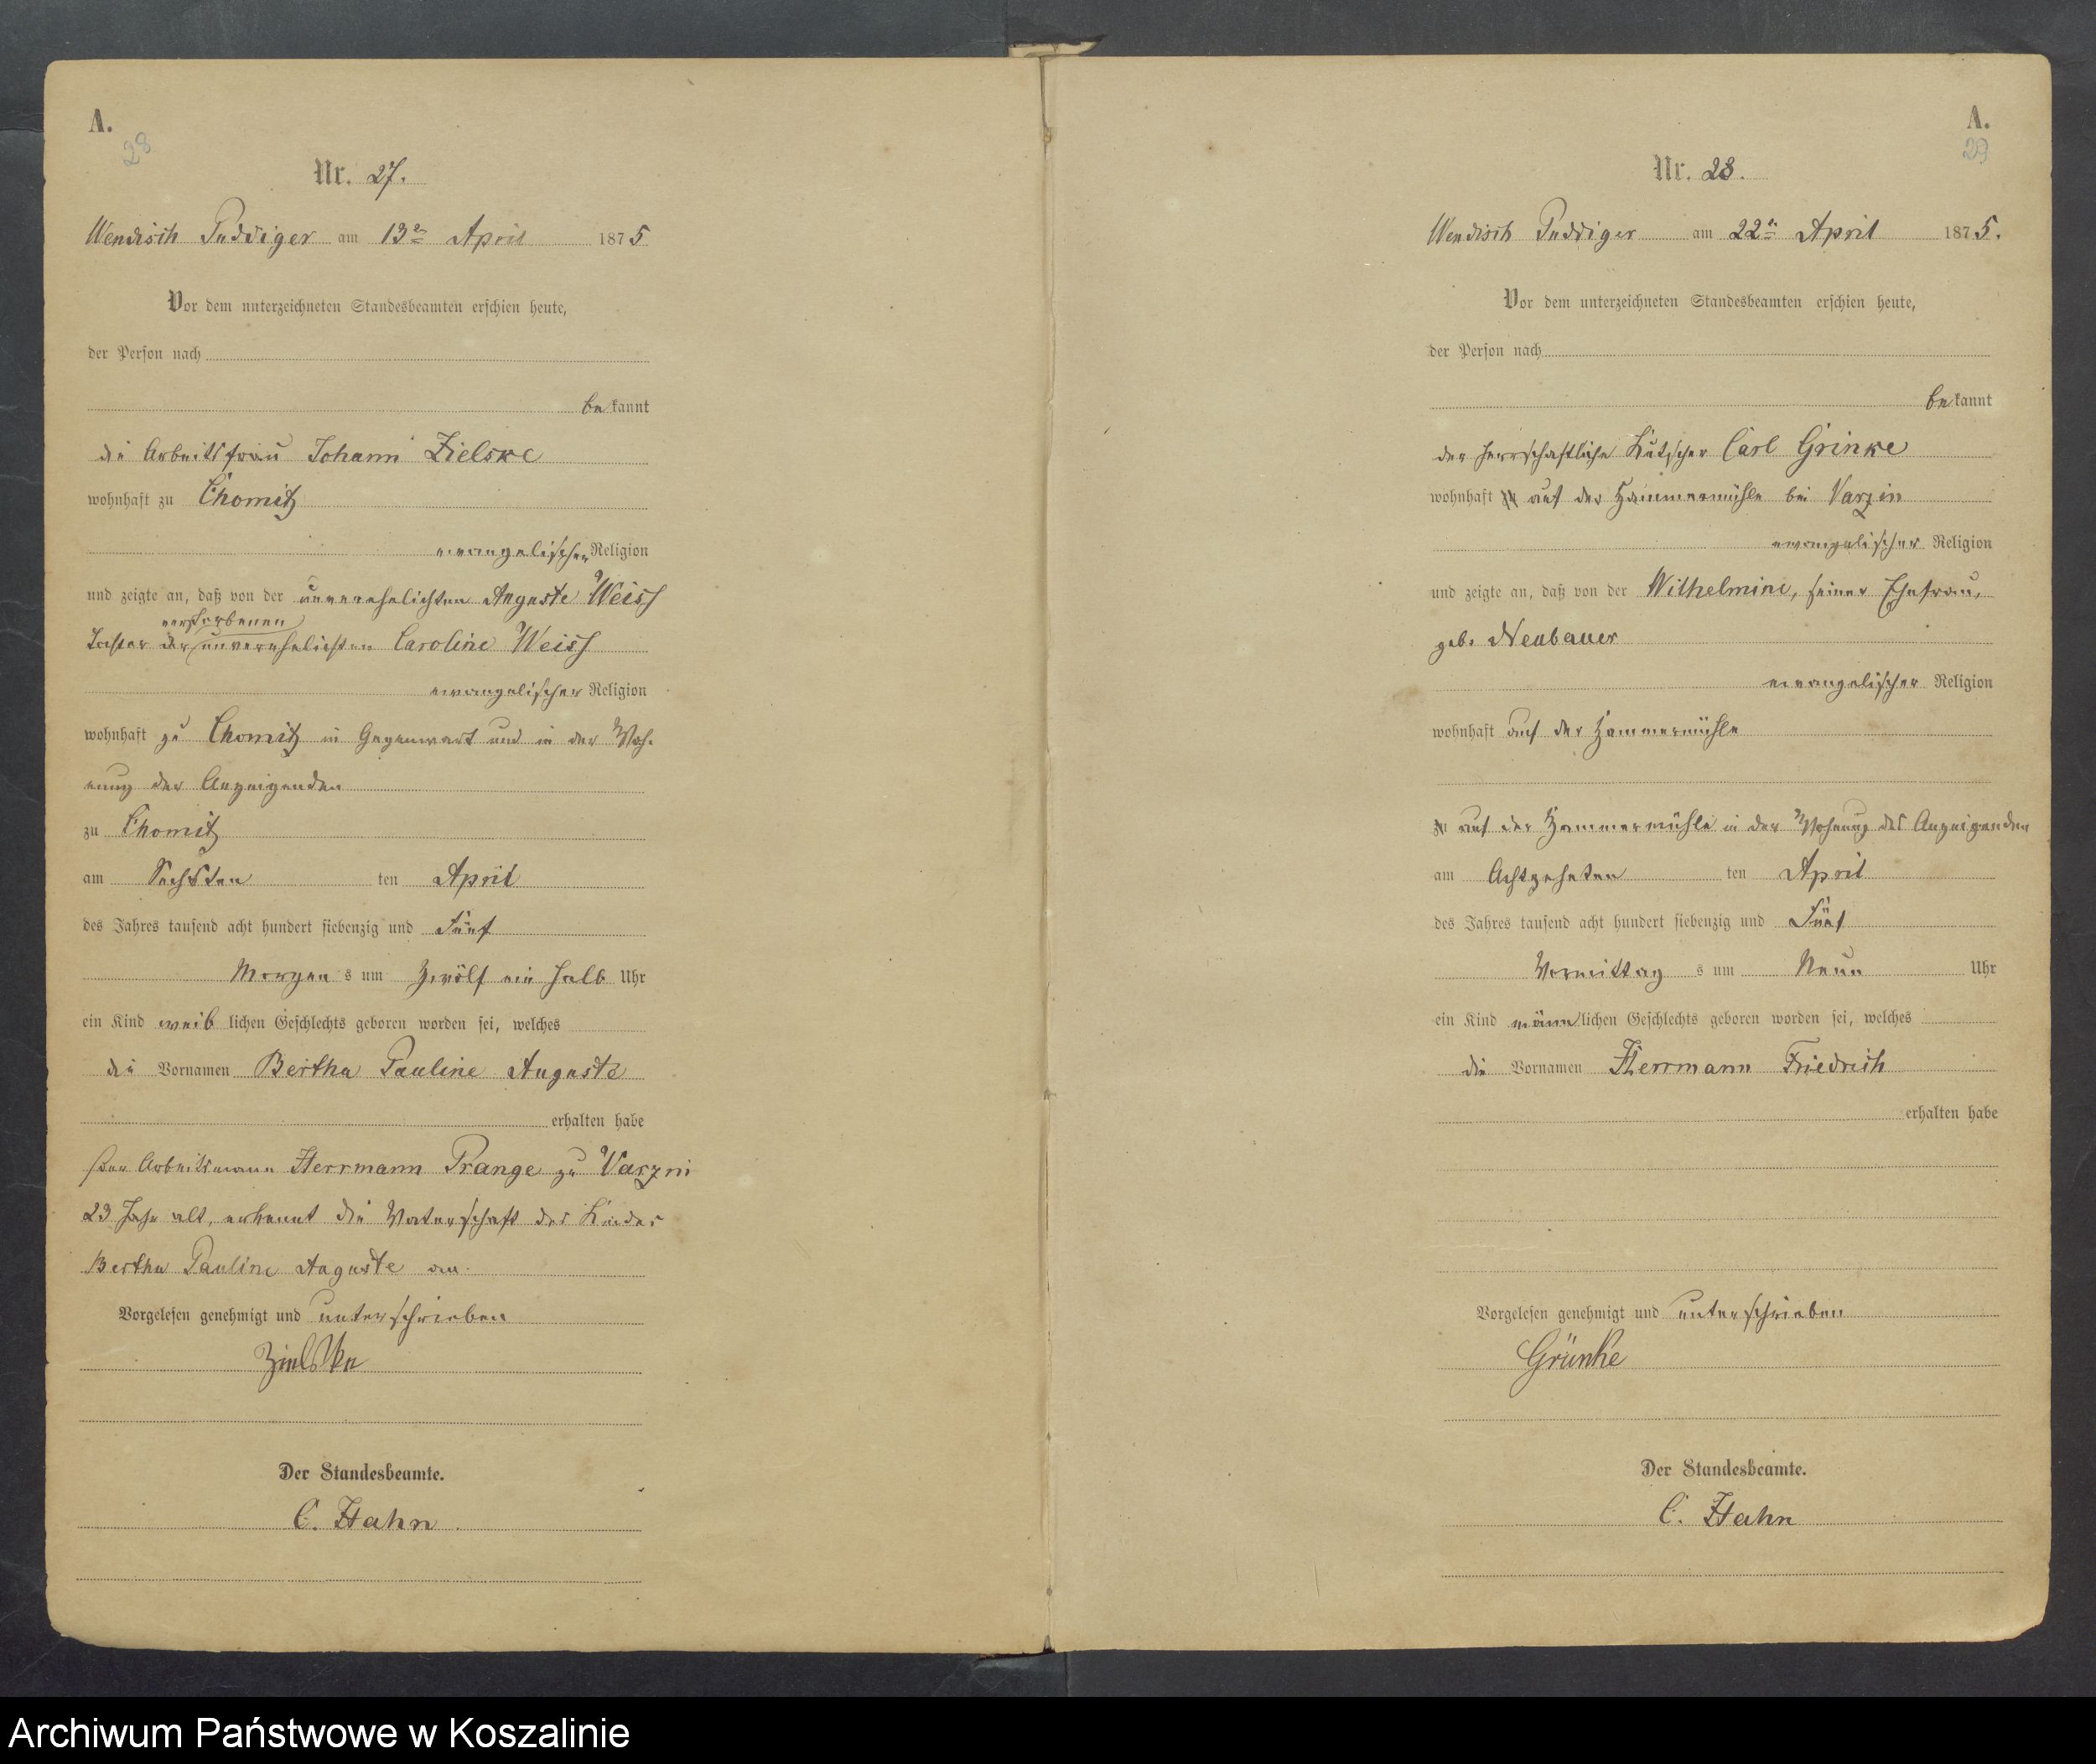 A.
28
Nr. 27.
Wendisch Puddiger am 13ten April 1875
Vor dem unterzeichneten Standesbeamten erschien heute,
der Person nach
bekannt
die Arbeitsfrau Johann Zielske
wohnhaft zu Chomitz
evangelischer Religion
und zeigte an, daß von der unverehelichten Auguste Weiss
verstorbenen
Tochter der unverehelichten Caroline Weiss
evangelischer Religion
wohnhaft zu Chomitz in Gegenwart und in der Woh-
nung der Anzeigenden
zu Chomitz
am Sechsten ten April
des Jahres tausend acht hundert siebenzig und Fünf
Morgens um Zwölf ein halb Uhr
ein Kind weiblichen Geschlechts geboren worden sei, welches
die Vornamen Bertha Pauline Auguste
erhalten habe
Der Arbeitsmann Herrmann Prange zu Varzin
23 Jahr alt, erkennt die Vaterschaft des Kindes
Bertha Pauline Auguste an.
Vorgelesen genehmigt und unterschrieben
Zielske
Der Standesbeamte.
C. Hahn
A.
29
Nr. 28.
Wendisch Puddiger am 22ten April 1875.
Vor dem unterzeichneten Standesbeamten erschien heute,
der Person nach
bekannt
der herrschaftliche Kutscher Carl Grinke
wohnhaft zu auf der Hammermühle bei Varzin
evangelischer Religion
und zeigte an, daß von der Wilhelmine, seiner Ehefrau,
geb. Neubauer
evangelischer Religion
wohnhaft auf der Hammermühle
zu auf der Hammermühle in der Wohnung des Anzeigenden
am Achtzehnten ten April
des Jahres tausend acht hundert siebenzig und Fünf
Vormittags um Neun Uhr
ein Kind männlichen Geschlechts geboren worden sei, welches
die Vornamen Herrmann Friedrich
erhalten habe
Vorgelesen genehmigt und unterschrieben
Grünke
Der Standesbeamte.
C. Hahn
Archiwum Państwowe w Koszalinie